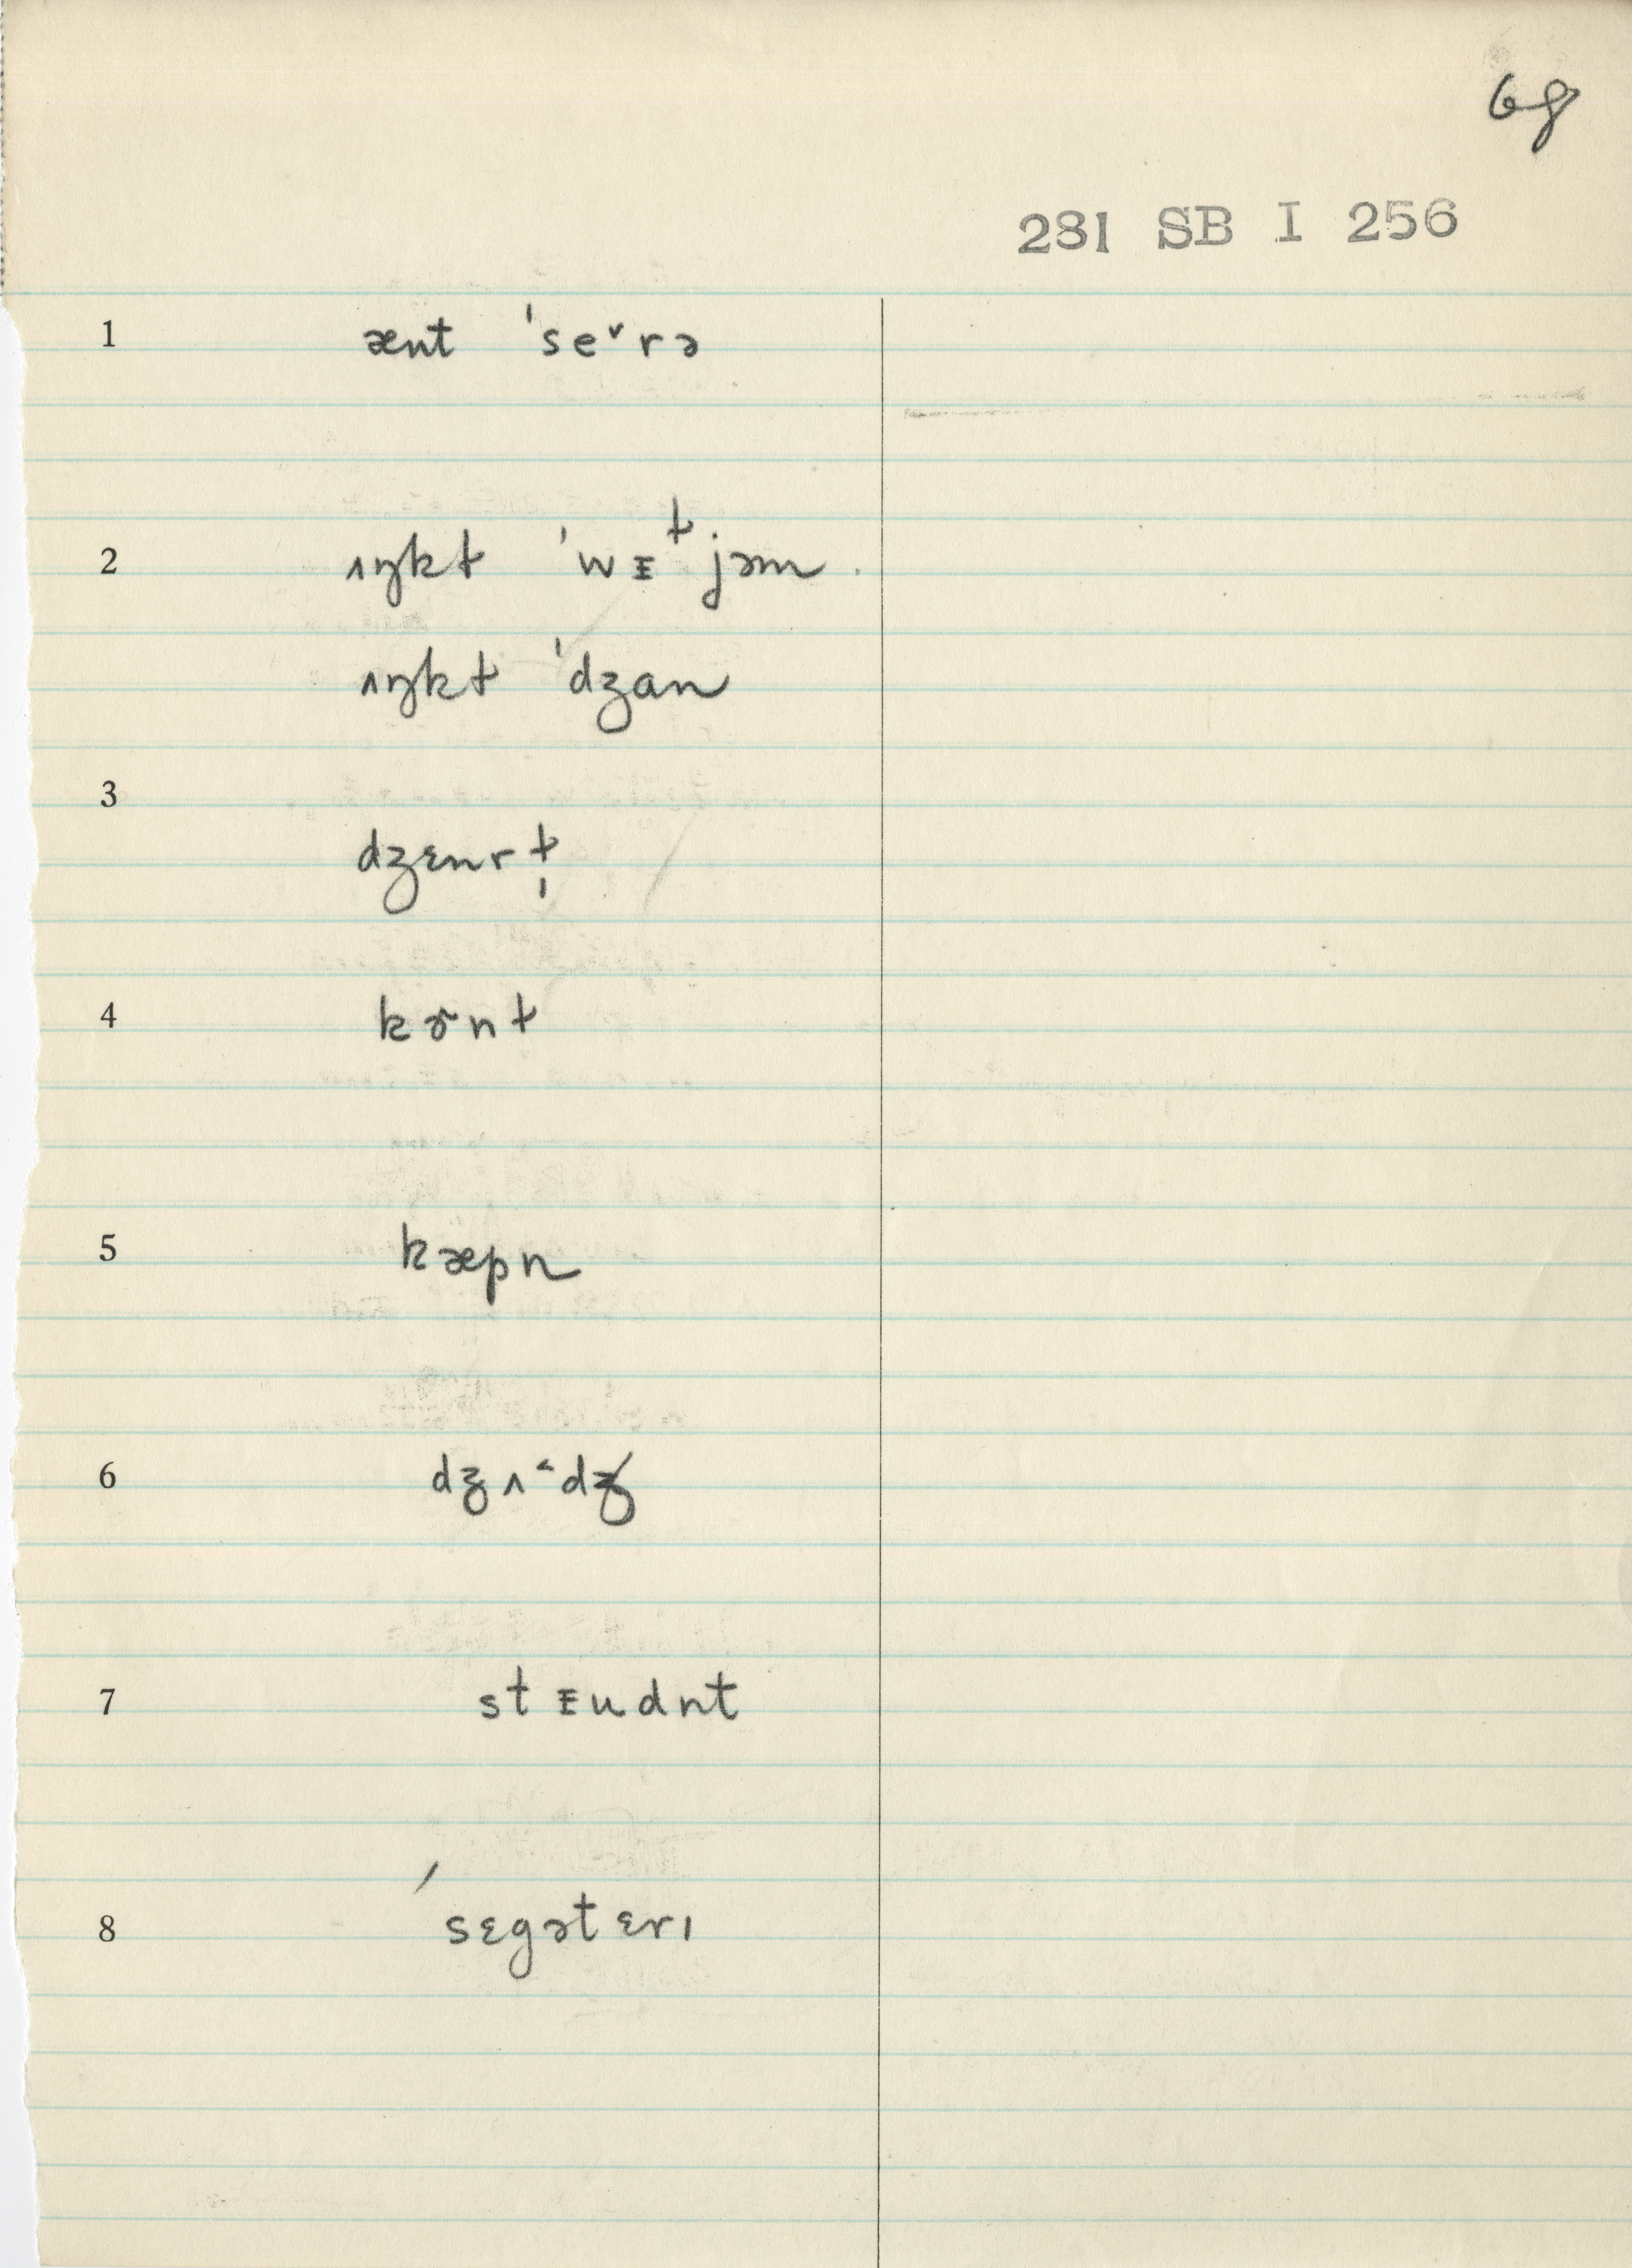 68
281 SB I 256
1 ænt ˈseˇrə
2 ʌŋkɫ ˈwᵻᵗjəm
ʌŋkɫ ˈdʒan
3 dʒɛnrɫ̩
4 kɚnɫ
5 kæpn
6 dʒʌ˂dʒ
7 stᵻudnt
8 ˊsɛgətɛrɪ